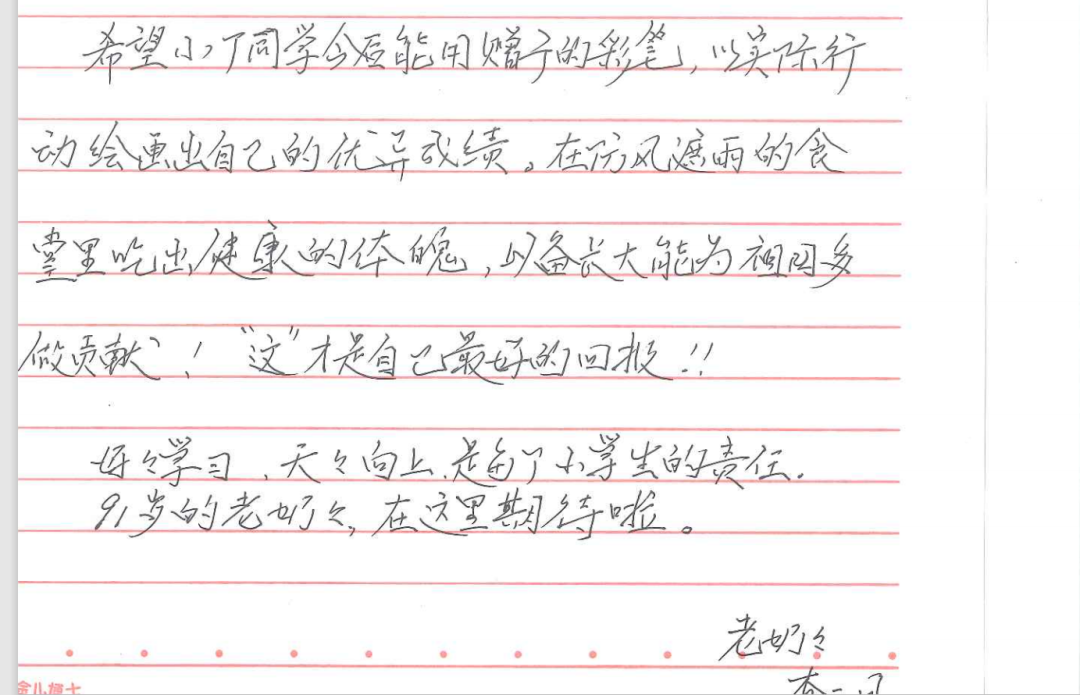 希望小丁同学今后能用赠予的彩笔，以实际行
动绘画出自己的优异成绩。在防风遮雨的食
堂里吃出健康的体魄，以备长大能为祖国多
做贡献！“这”才是自己最好的回报！！
好々学习、天々向上是每个小学生的责任.
91岁的老奶々，在这里期待啦。
老奶々